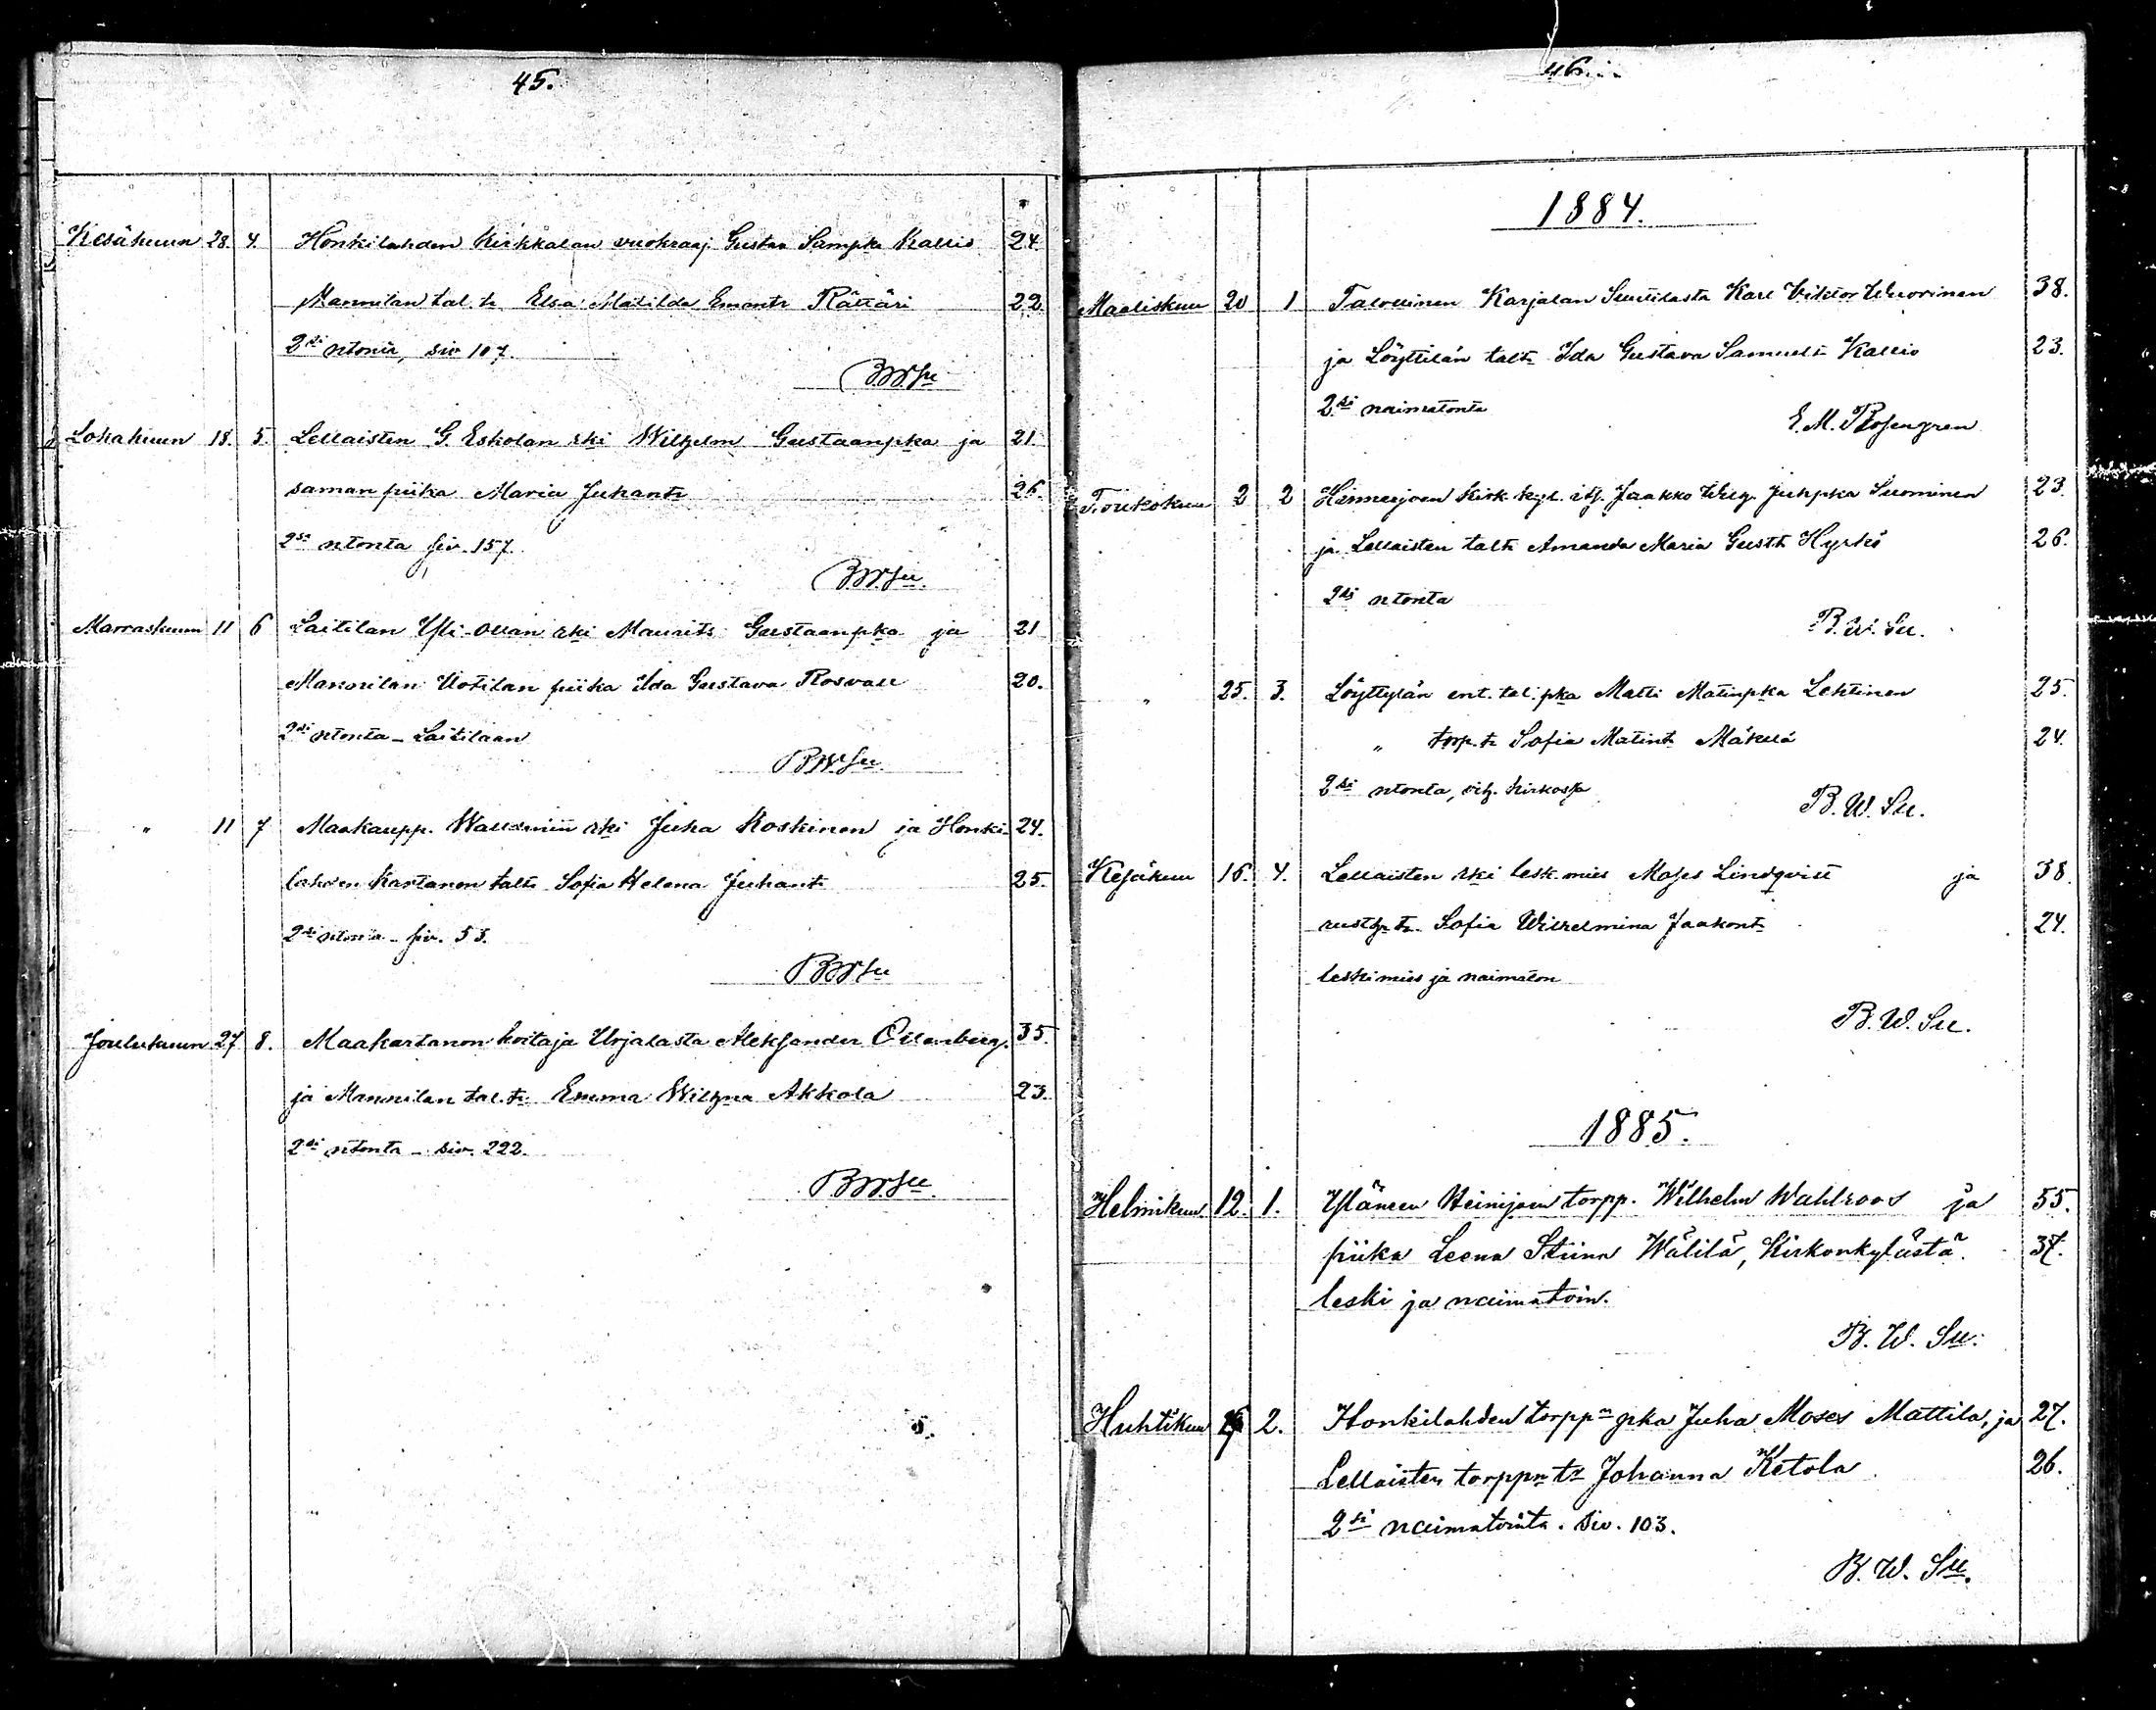 45.
Kesäkuun 28. 4. Honkilahden Kirkkalan vuokraaj Gustaa Sampka Kallio 24.
Mannilan tal. tr Elsa Matilda Emantr Rättäri 22.
2si ntonta, siv 107.
B.W.Su
Lokakuun 18. 5. Lellaisten G. Eskolan rki Wilhelm Gustaanpka ja 21
saman piika Maria Juhantr 26.
2si ntonta siv. 157.
B.W.Su.
Marraskuun 11 6 Laitilan Yli-Ollan rki Maurits Gustaanpka ja 21
Mannilan Uotilan piika Ida Gustava Rosvall 20.
2si ntonta - Laitilaan
B.W.Su.
" 11 7 Maakaupp. rki Juha Koskinen ja Honki- 24.
lahden Kartanon taltr Sofia Helena Juhantr 25.
2si ntonta - siv. 53.
B.W.Su
Joulukuun 27 8. Maakartanon hoitaja Urjalasta Aleksander Ollenberg. 35.
ja Mannilan tal. tr Emma Wilhna Akkola 23.
2si ntonta - siv. 222.
B.W.Su.
46.
1884.
Maaliskuu 20 1 Talollinen Karjalan Suutilasta Karl Viktor Wuorinen 38.
ja Löyttilän taltr Ida Gustava Samuelstr Kallio 23.
2si naimatonta
E. M. Rosengren
Toukokuu 2 2 Hinnerjoen kirk. kyl. itj. Jaakko Wilh. Juhpka Suominen 23.
ja Lellaisten taltr Amanda Maria Gusttr Hyrkö 26.
2si ntonta
B. W. Su.
" 25. 3. Löyttylän ent. tal. pka Matti Matinpka Lehtinen 25.
" torp. tr Sofia Matintr Mäkilä 24.
2si ntonta, vih. kirkossa
B. W. Su.
Kesäkuu 16. 4. Lellaisten rki lesk. mies Moses Lindqvist ja 38.
rusth. tr. Sofia Wilhelmina Jaakontr 24.
leskimies ja naimaton
B. W. Su.
1885.
Helmikuu 12. 1. Yläneen Heinijoen torpp. Wilhelm Wahlroos ja 55.
piika Leena Stiina Wälilä, Kirkonkylästä. 37.
leski ja naimatoin.
B. W. Su.
Huhtikuu 2. Honkilahden torppn pka Juha Moses Mattila, ja 27.
Lellaisten torppn tr Johanna Ketola 26.
2si naimatointa. Siv. 103.
B. W. Su.